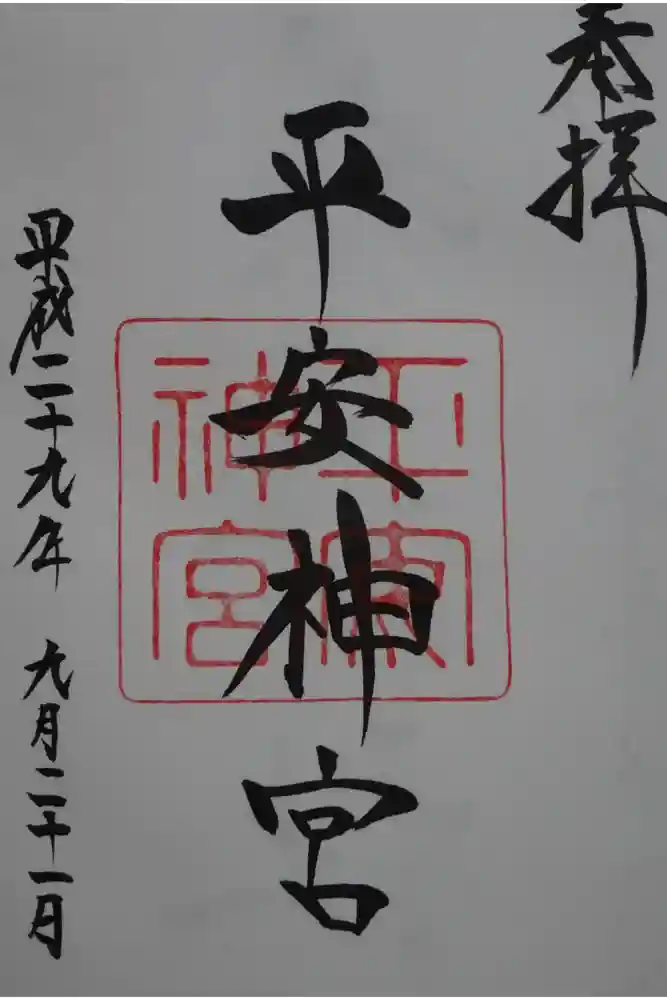 奉拝
平安神宮
平安神宮
平成二十九年 九月二十一日